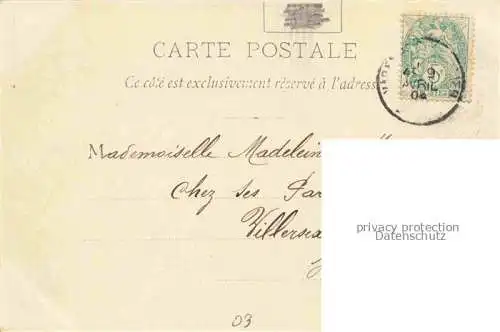 CARTE POSTALE
Ce côté est exclusivement réservé à l'adresse
9
AVRIL
04
Mademoiselle Madelein
Chez ses Par
Villersex
privacy protection
Datenschutz
03